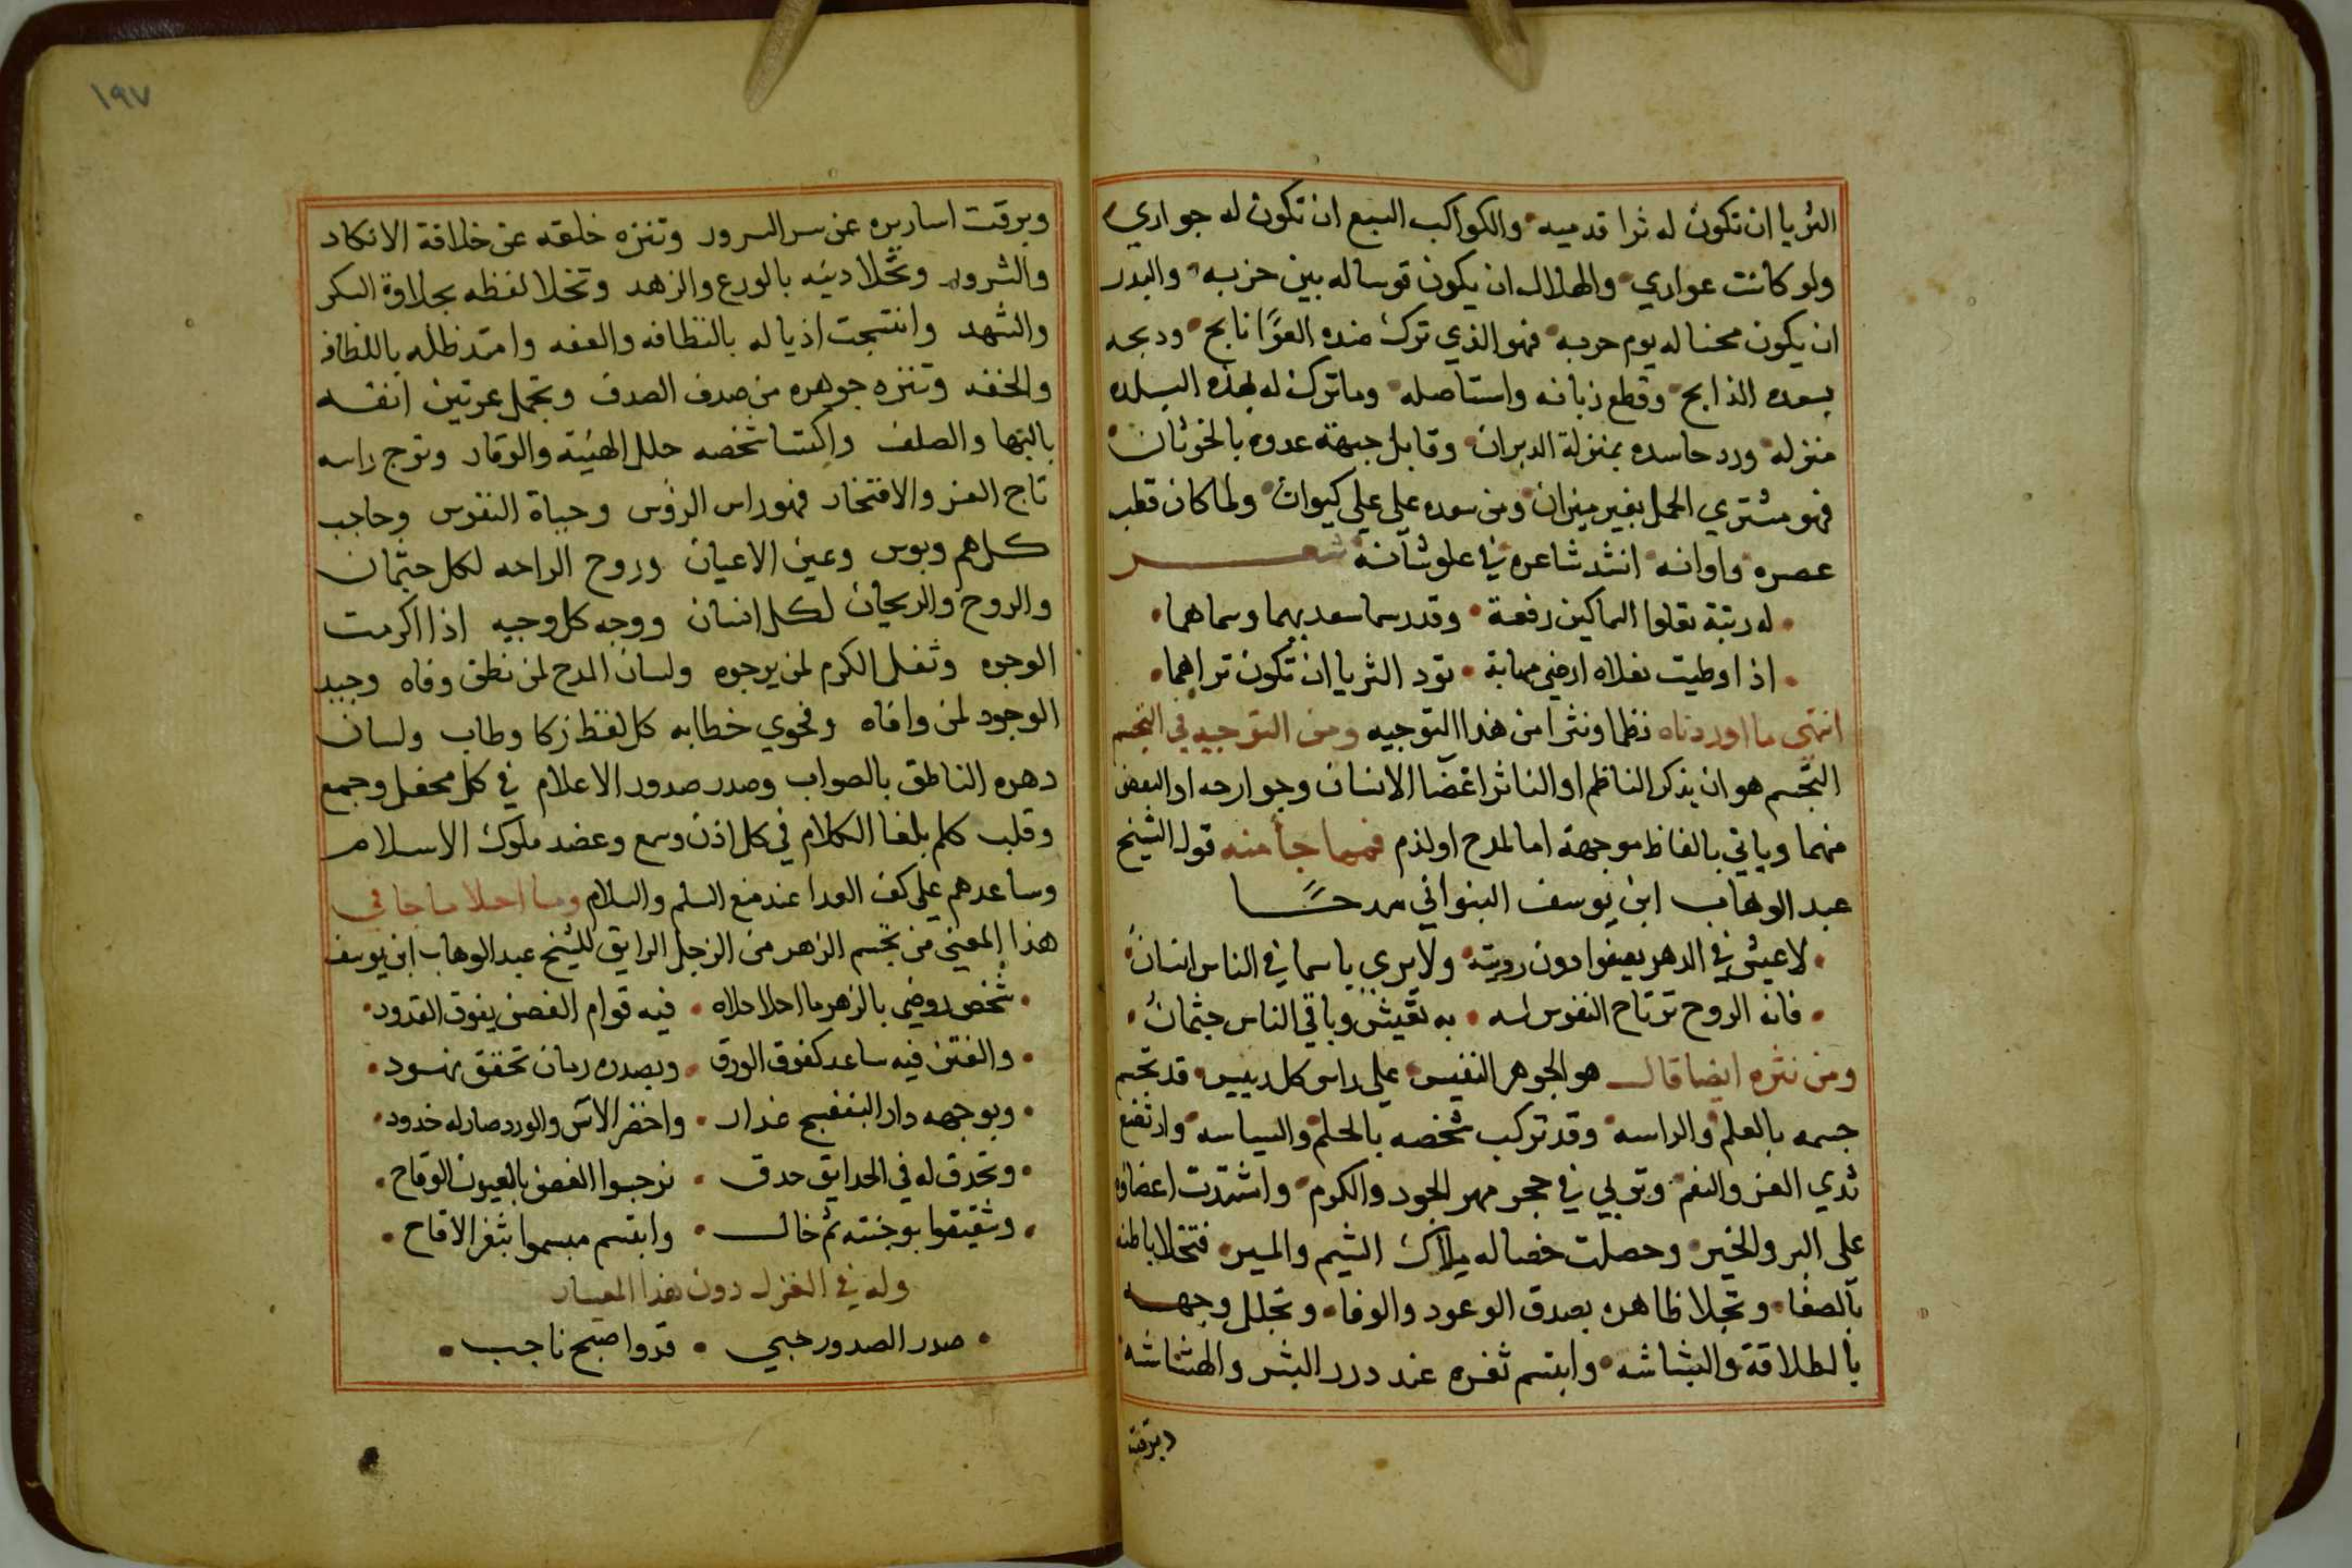 الثريا ان تكون له ثرا قدميه والكواكب السبع ان تكون له جواري
ولو كانت عواري والهلال ان يكون قوسا له بين حزبه والبدر
ان يكون مجنا له يوم حربه فهو الذي ترك ضده العوّا نابح ودبحه
بسعده الذابح وقطع زبانه واستاصله وما ترك له بهذه البلده
منزله ورد حاسده بمنزلة الدبران وقابل جبهة عدوه بالخرثان
فهو مشتري الحمل بغير ميزان ومن سعده علي علي كيوان ولما كان قطب
عصره واوانه انشد شاعره في علو شانه شعر
له رتبة تعلوا السماكين رفعة وقدر سما سعد بهما وسماهما
اذا وطيت نعلاه ارضي مهابة تود الثريا ان تكون تراهما
انتهي ما اوردناه نظما ونثرا من هذا التوجيه ومن التوجيه في التجسم
التجسم هو ان يذكر الناظم او الناثر اعضا الانسان وجوارحه او البعض
منهما وياتي بالفاظ موجهة اما لمدح او لذم فمما جا منه قول الشيخ
عبد الوهاب ابن يوسف البنواني مدحًا
لا عيش في الدهر يصفوا دون رويته ولا يري ياسما في الناس انسان
فانه الروح ترتاح النفوس له به تعيش وباقي الناس جثمان
ومن نثره ايضا قال هو الجوهر النفيس علي راس كل رييس قد تجسم
جسمه بالعلم والراسه وقد تركب شخصه بالحلم والسياسه وارتضع
ثدي العز والنعم وتربي في حجر مهر الجود والكرم واشتدت اعضاوه
على البر والخير وحصلت خصاله ملاك الشيم والسير فتخلا باطنه
بالصفا وتجلا ظاهره بصدق الوعود والوفا وتجلل وجهه
بالطلاقة والبشاشه وابتسم ثغره عند درر البشر والهشاشه
وبرقت
١٩٧
وبرقت اساريره عن سر السرور وتنزه خلقه عن خلافة الانكاد
والشرور وتحلا دينه بالورع والزهد وتحلا لفظه بحلاوة السكر
والشهد وانتسجت اذياله بالنظافه والعفه وامتد ظله باللطافه
والخفه وتنزه جوهره من صدف الصدف وتجمل عرنين انفه
بالبها والصلف واكتسا شخصه حلل الهيئة والوقار وتوج راسه
تاج العز والافتخار فهو راس الرؤس وحياة النفوس وحاجب
كل هم وبوس وعين الاعيان وروح الراحه لكل جثمان
والروح والريحان لكل انسان ووجه كل وجيه اذا اكرمت
الوجوه وثغل الكرم لمن يرجوه ولسان المدح لمن نطق وفاه وجيد
الوجود لمن وافاه وفحوي خطابه كل لفظ زكا وطاب ولسان
دهره الناطق بالصواب وصدر صدور الاعلام في كل محفل وجمع
وقلب كلم بلغا الكلام في كل اذن وسمع وعضد ملوك الاسلام
وساعدهم علي كف العدا عند منع السلم والسلام وما احلا ما جا في
هذا المعني من تجسم الزهر من الزجل الرايق للشيخ عبد الوهاب ابن يوسف
شخص روضي بالزهر ما احلا حلاه فيه قوام الغصن يفوق القدود
والغصن فيه ساعد كفوف الورق وبصدره رمان تحقق نهود
وبوجهه دار البنفسج عذار واخضر الآس والورد صار له خدود
وتحدق له في الحدايق حدق نرجسوا الغض بالعيون الوقاح
وشقيقوا بوجنته ثم خال وابتسم مبسموا بثغر الاقاح
وله في الغزل دون هذا المعيار
صدر الصدور حبي قدوا صبح ناجب